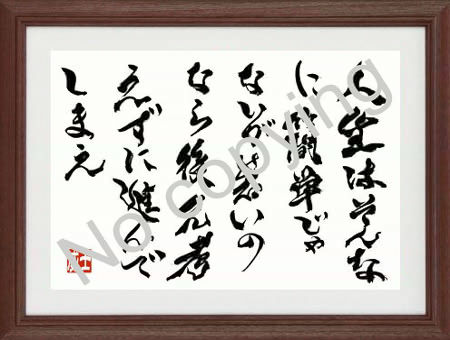 人生はそんな
に簡単じゃ
ないが若いの
なら後先考
えずに進んで
しまえ
No copying